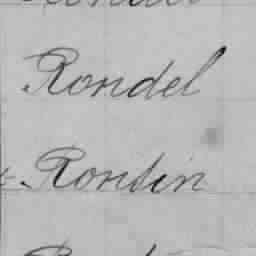 Rondel
Rondin